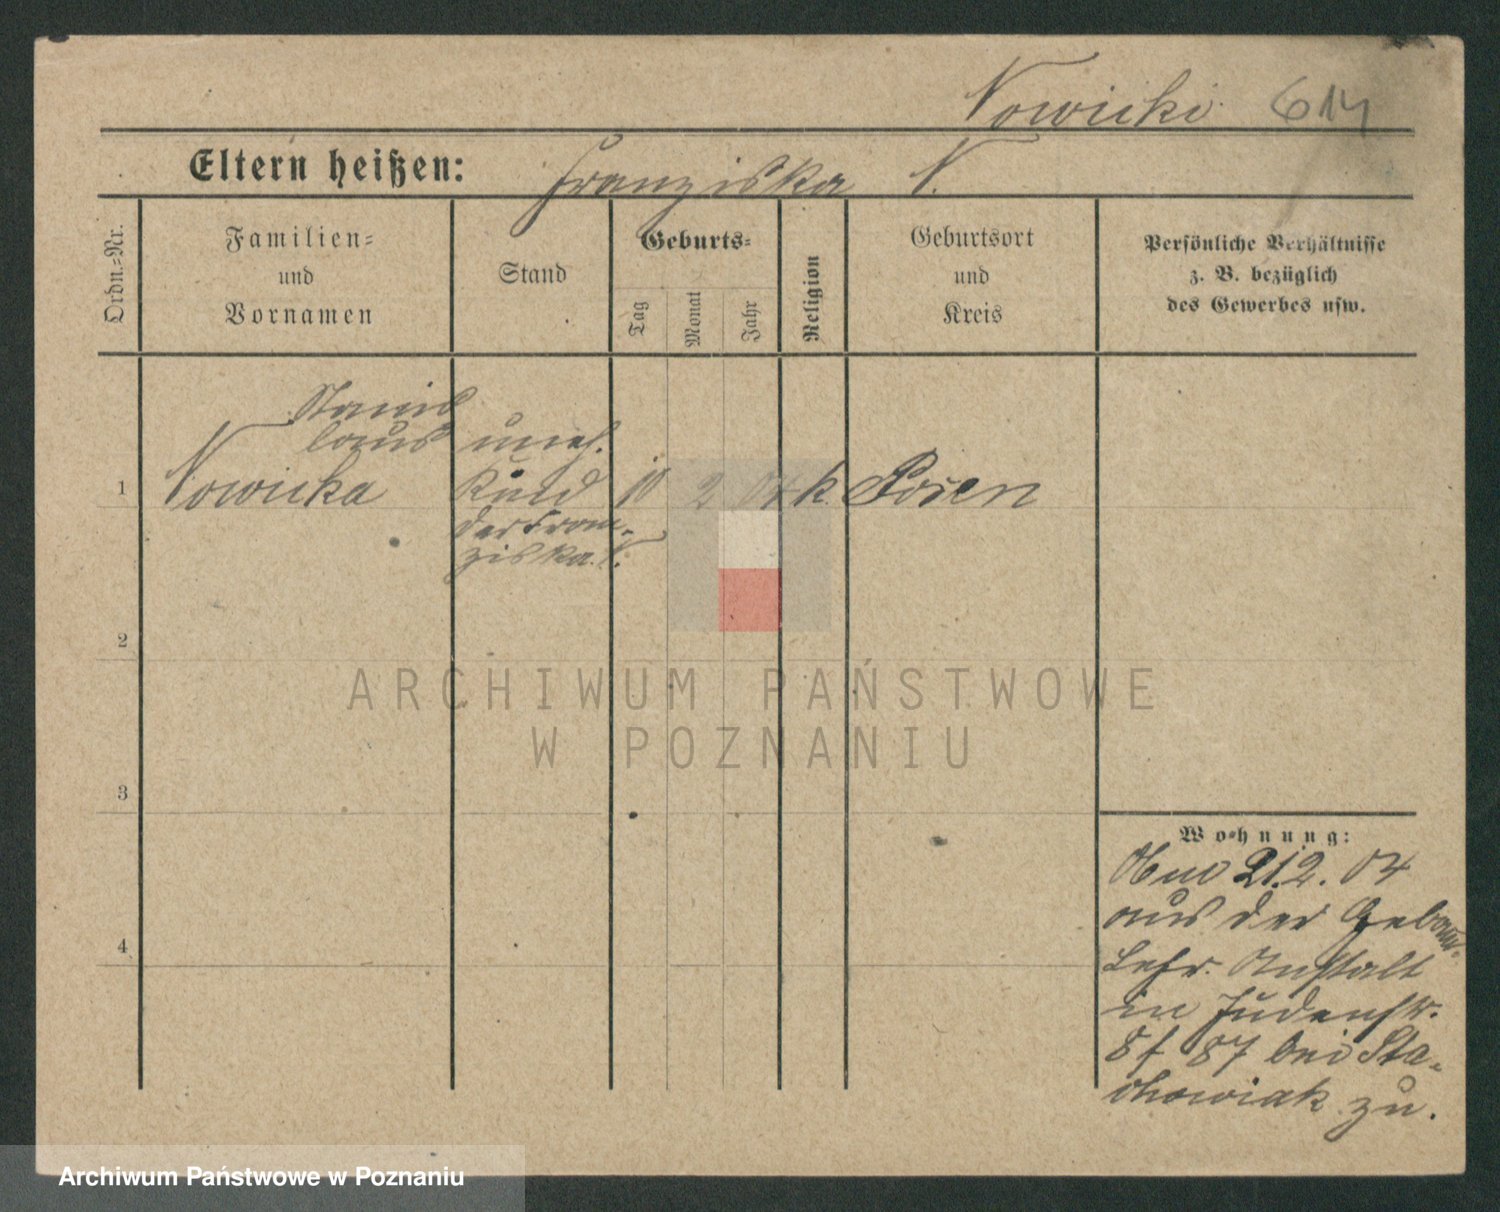 Nowicki 614
Eltern heißen: Franziska N.
Ordn.-Nr.
Familien-
und
Vornamen
Stand
Geburts-
Tag
Monat
Jahr
Religion
Geburtsort
und
Kreis
Persönliche Verhältnisse
z. B. bezüglich
des Gewerbes usw.
Stanis
laus
uneh.
1 Nowicka Kind 10 2 04 k. Posen
der Fran-
ziska N.
2
3
4
Wohnung:
21.2. 04
aus der
Lehr. Anstalt
in Judenstr.
87 bei Sta-
chowiak zu.
ARCHIWUM PAŃSTWOWE
W POZNANIU
Archiwum Państwowe w Poznaniu